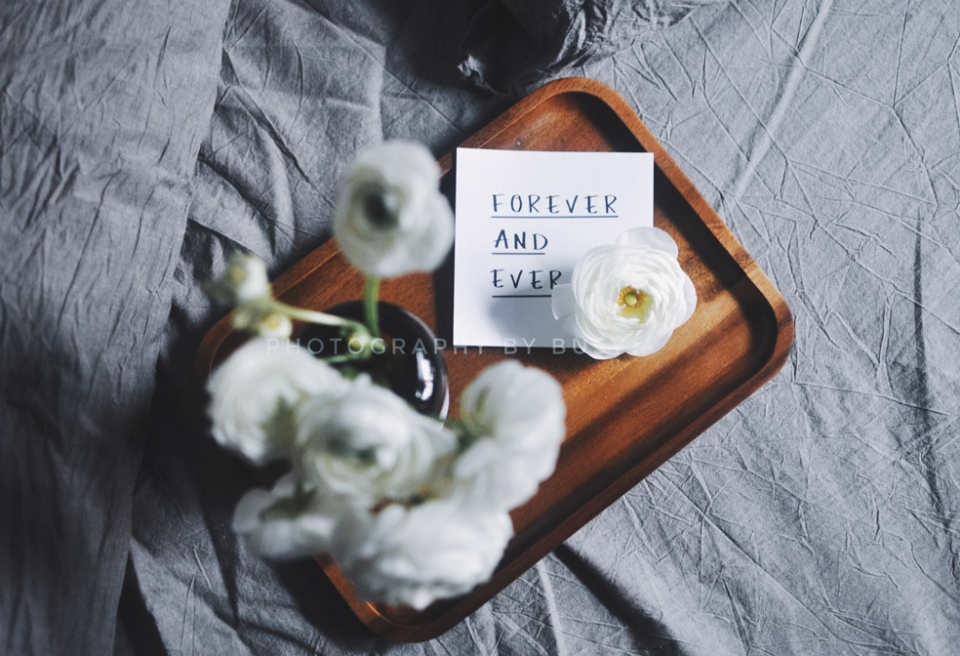 FOREVER
AND
EVER
PHOTOGRAPHY BY